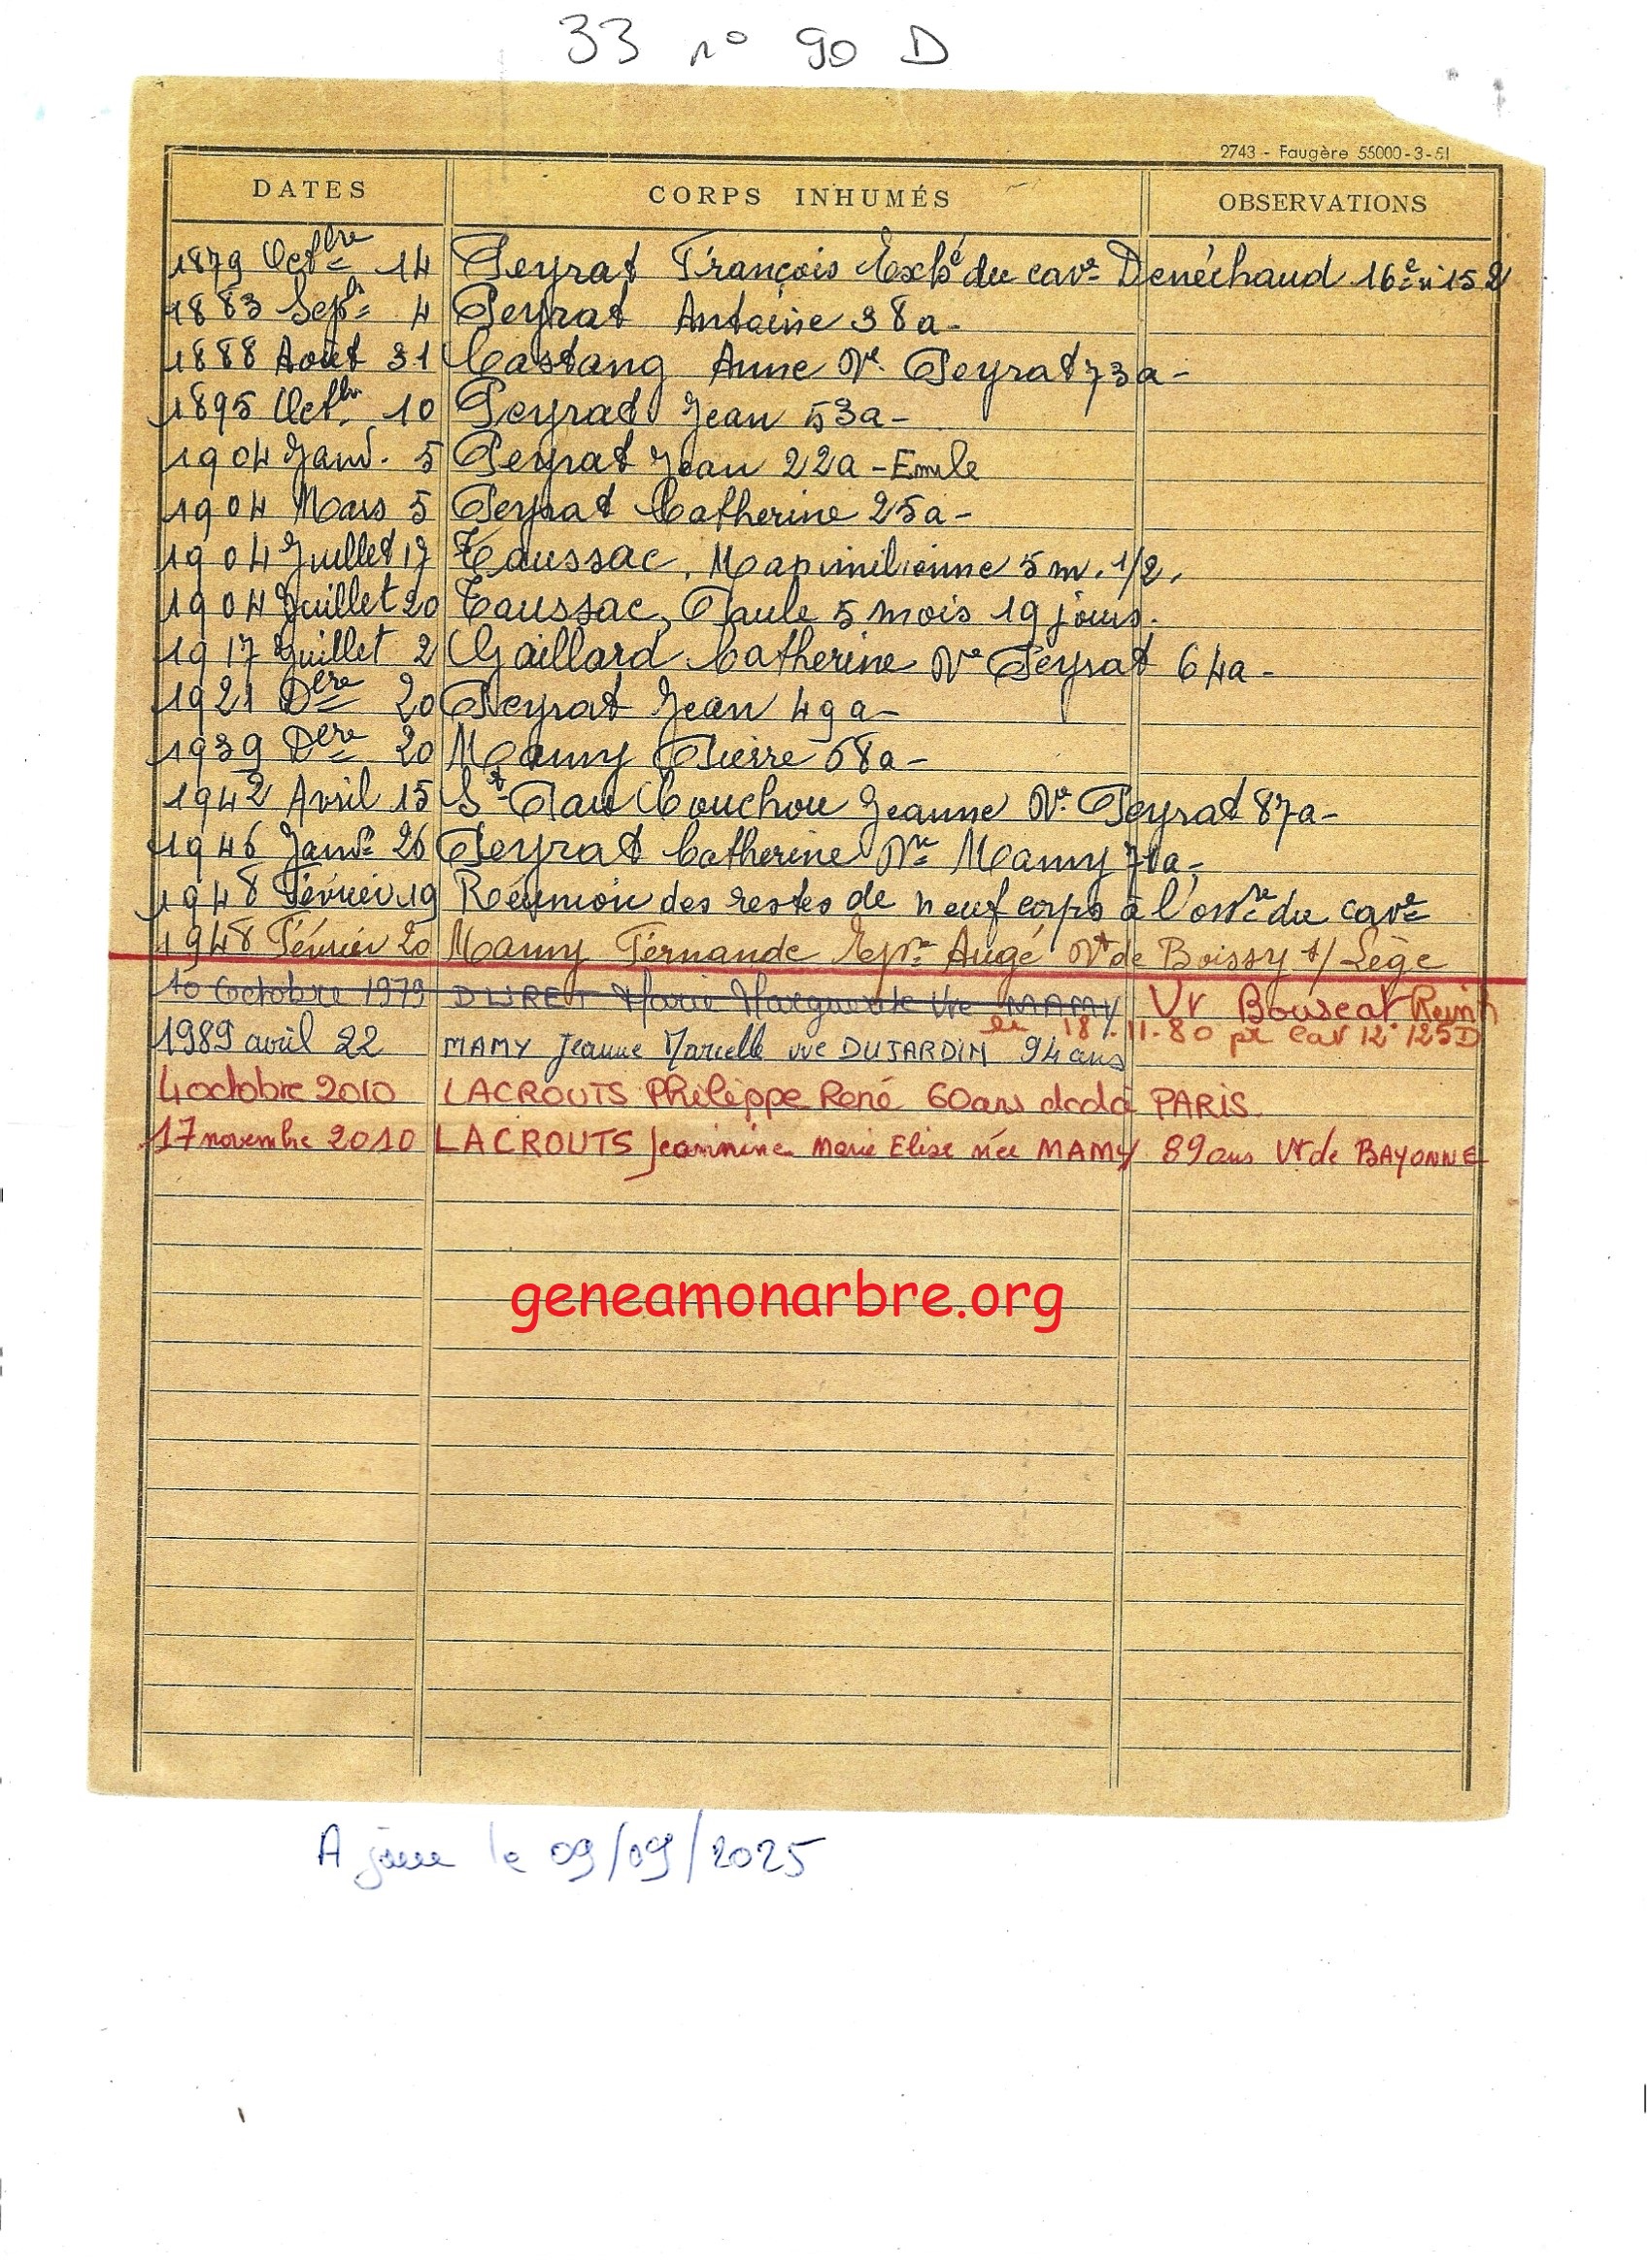 33 n° 90 D
2743 - Faugère 55000-3-51
DATES CORPS INHUMÉS OBSERVATIONS
1879 Octbre 14 Peyrat François Exhé du cave Denéchaud 16e n° 152
1883 Sept. 4 Peyrat Antoine 38a-
1888 Août 31 Castang Anne Ve Peyrat 73a-
1895 Octbr. 10 Peyrat Jean 53a-
1904 Janv. 5 Peyrat Jean 22a - Emile
1904 Mars 5 Peyrat Catherine 25a-
1904 Juillet 17 Taussac, Maximilienne 5 m. 1/2.
1904 Juillet 20 Taussac, Paule 5 mois 19 jours.
1917 Juillet 2 Gaillard Catherine Ve Peyrat 64a-
1921 Dbre 20 Peyrat Jean 49a-
1939 Dbre 20 Mamy Pierre 68a-
1942 Avril 15 St-Pau Couchou Jeanne Ve Peyrat 87a-
1946 Janvr 26 Peyrat Catherine Ve Mamy 71a-
1948 Février 19 Réunion des restes de neuf corps à l'ossre du cave
1948 Février 20 Mamy Fernande Epse Augé Vt de Boissy s/ Lège
10 Octobre 1979 DURET Marie Marguerite Vve MAMY Vr Bouscat Reinh
le 18.11.80 pr cav 12° 125D
1989 avril 22 MAMY Jeanne Marcelle vve DUJARDIN 94 ans
4 octobre 2010 LACROUTS Philippe René 60 ans dcd à PARIS.
17 novembre 2010 LACROUTS Jeannine Marie Elise née MAMY 89 ans Vt de BAYONNE
geneamonarbre.org
A jour le 09/09/2025